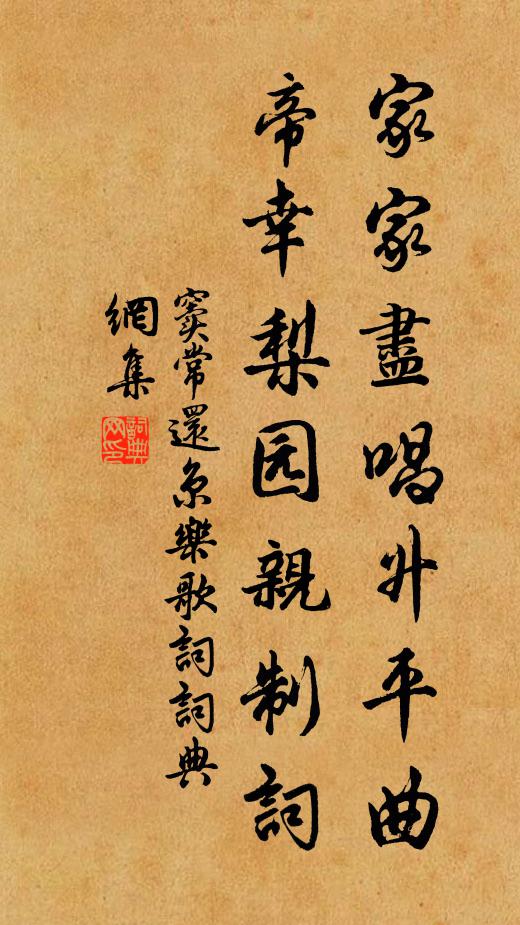 家家盡唱升平曲
帝幸梨园親制詞
竇常還京樂歌詞詞典
網集
詞典
网印